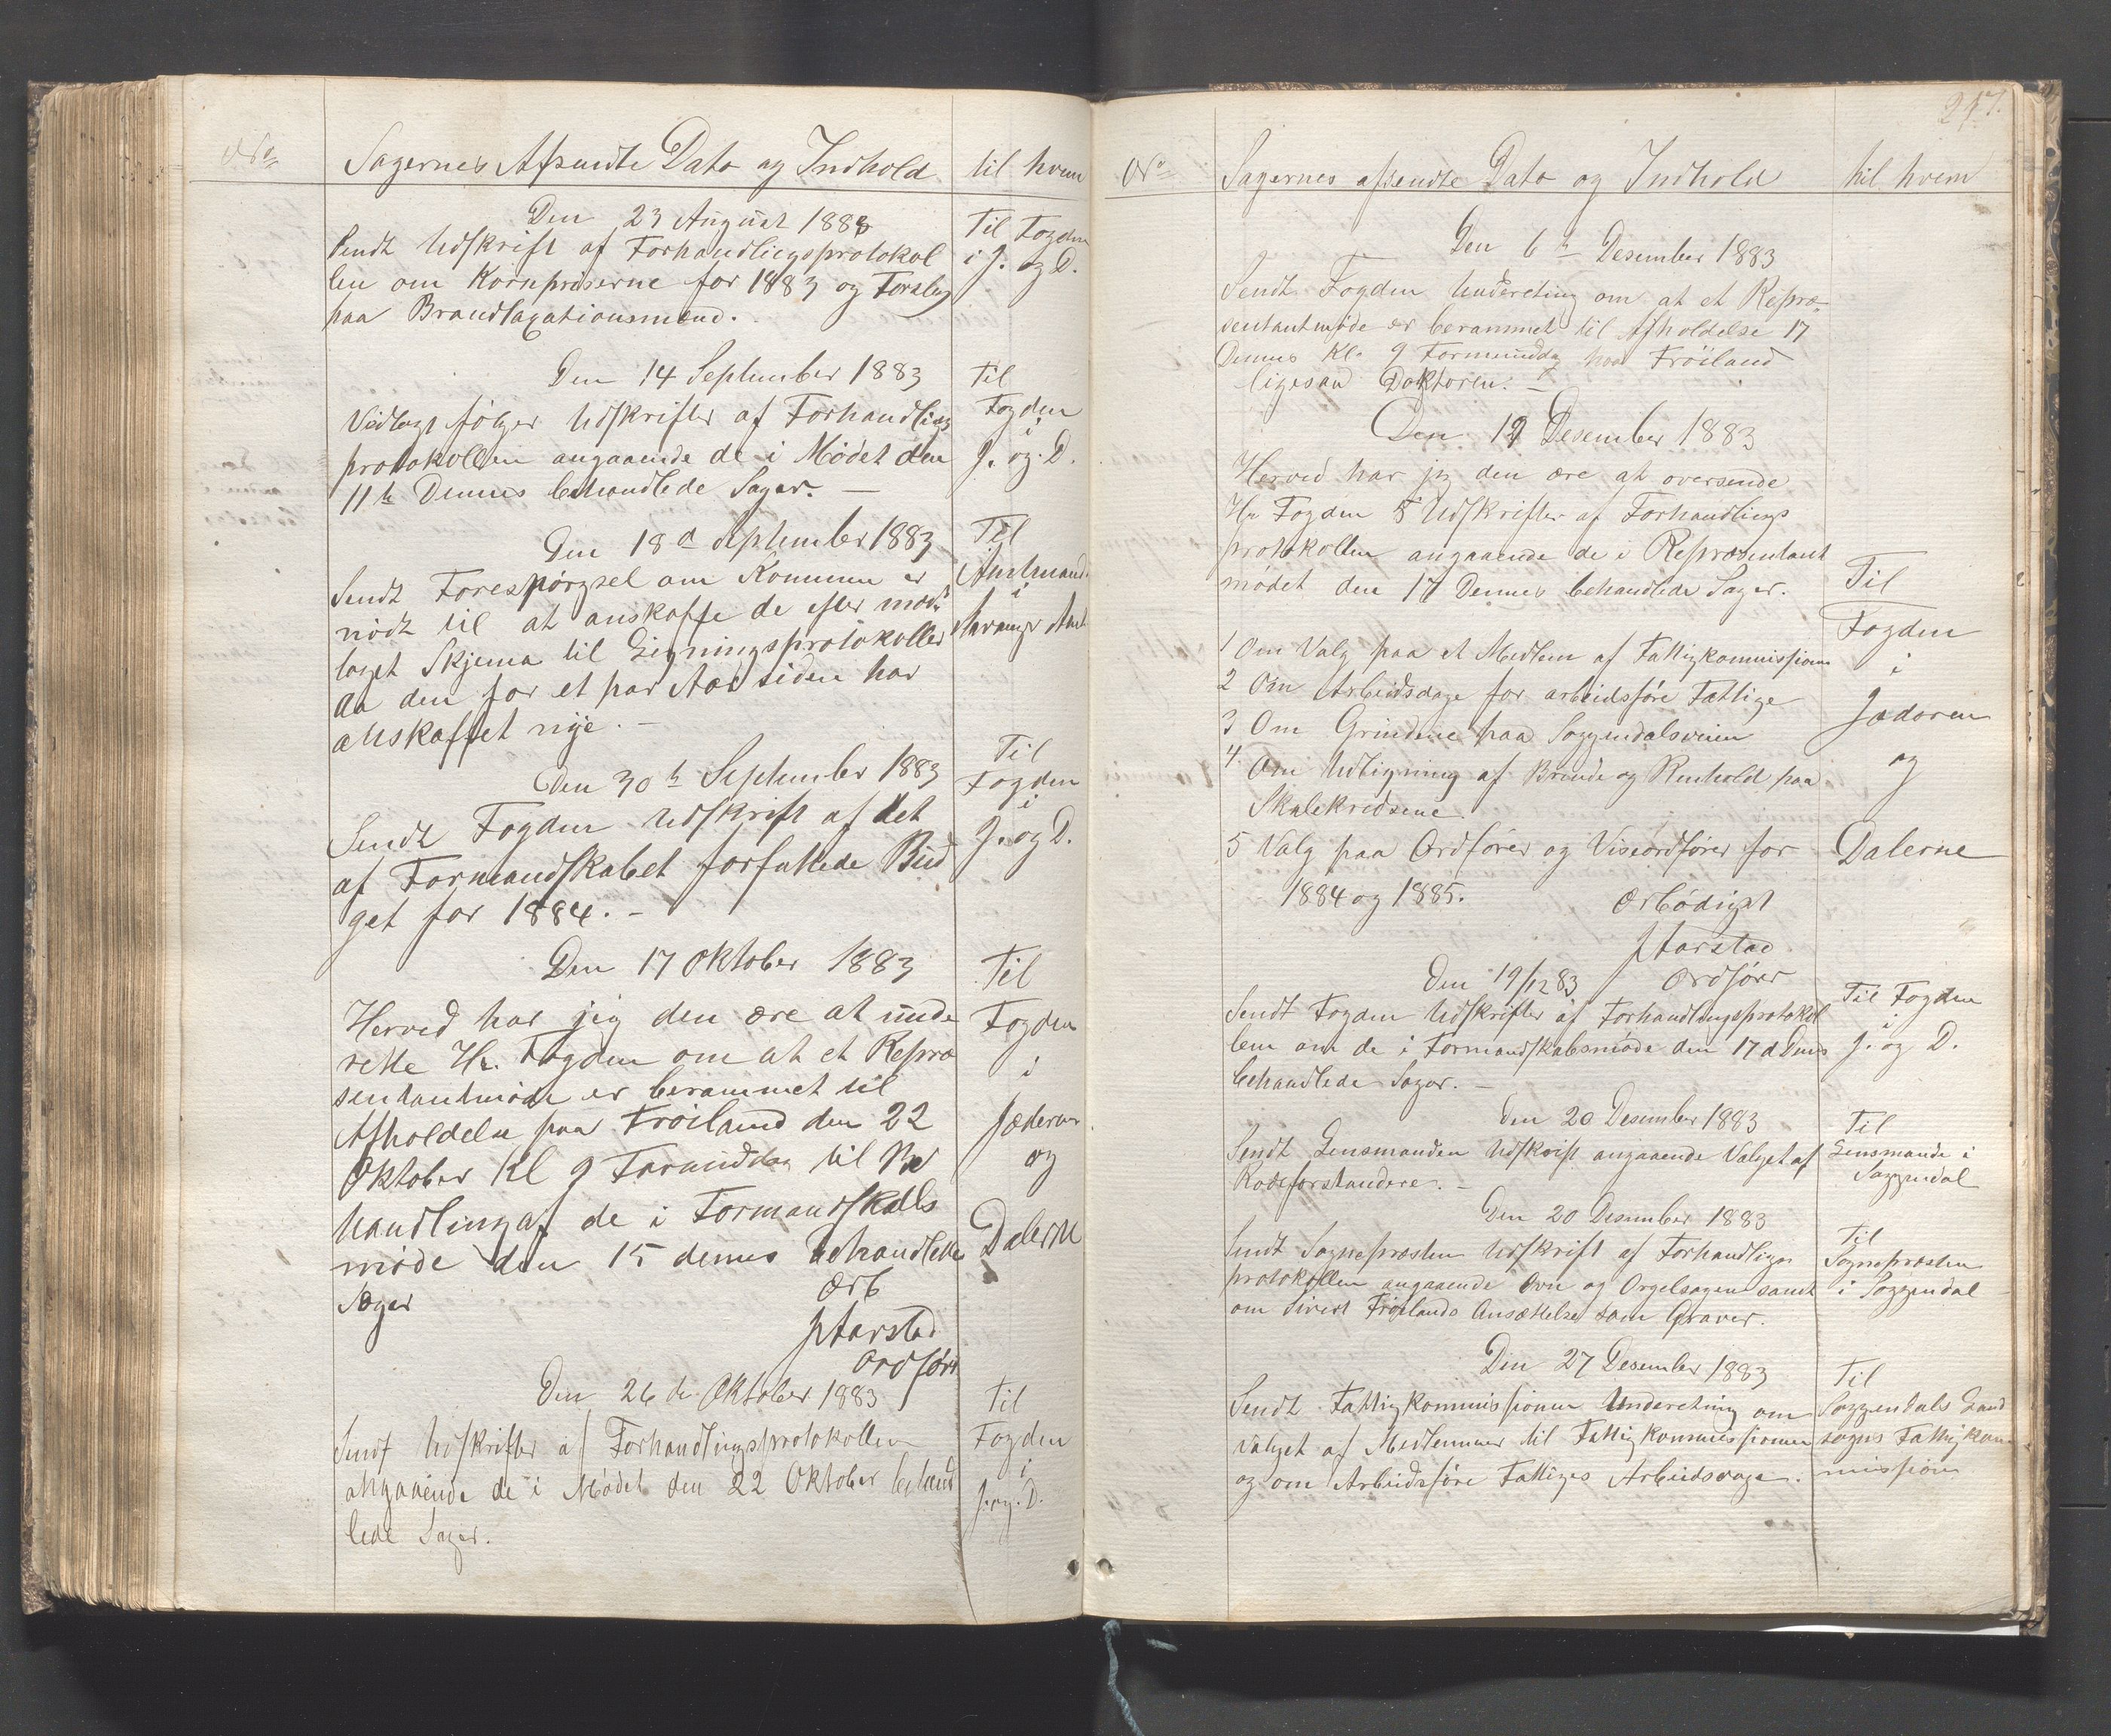 No Sagernes Afsendte Dato og Indhold til hvem
Den 23 August 1883
Sendt Udskrift af Forhandlingsprotokol
len om Kornpriserne for 1883 og Forslag
paa Brandtaxationsmænd.
Til Fogden
i J. og D.
Den 14 September 1883
Vedlagt følger Udskrifter af Forhandlings
protokollen angaaende de i Mødet den
11te Dennes behandlede Sager. —
Til
Fogden
i
J. og D.
Den 18d September 1883
Sendt Forespørgsel om Kommunen er
nødt til at anskaffe de efter mod
taget Skjema til Ligningsprotokoller
da den for et par Aar siden har
anskaffet nye. —
Til
Amtmand
i
Stavanger Amt
Den 30te September 1883
Sendt Fogden Udskrift af det
af Formandskabet forfattede Bud
get for 1884. -
Til
Fogden
i
J. og D.
Den 17 Oktober 1883
Herved har jeg den ære at unde
rette Hr. Fogden om at et Repræ
sentantmøde er berammet til
Afholdelse paa Frøiland den 22
Oktober Kl 9 Formiddag til Be
handling af de i Formandskabs
møde den 15 dennes behandlede
Sager
Ærb
J Aarstad
Ordfører
Til
Fogden
i
Jæderen
og
Dalerne
Den 26de Oktober 1883
Sendt Udskrifter af Forhandlingsprotokollen
angaaende de i Mødet den 22 Oktober behand
lede Sager.
Til
Fogden
i
J. og D.
217.
No Sagernes afsendte Dato og Indhold til hvem
Den 6te Desember 1883
Sendt Fogden Underetning om at et Repræ-
sentantmøde er berammet til Afholdelse 17
Dennes Kl. 9 Formiddag hos Frøiland
ligesaa Doktoren. —
Den 19 Desember 1883
Herved har jeg den ære at oversende
Hr Fogden 5 Udskrifter af Forhandlings
protokollen angaaende de i Repræsentant
mødet den 17 Dennes behandlede Sager.
1 Om Valg paa et Medlem af Fattigkommissionen
2 Om Arbeidsdage for arbeidsføre Fattige
3 Om Grindene paa Soggendalsveien
4 Om Udligning af Brænde og Renhold paa
Skolekredsene.
5 Valg paa Ordfører og Viseordfører for
1884 og 1885.
Ærbødigst
J Aarstad.
Ordfører
Til
Fogden
i
Jæderen
og
Dalerne
Den 19/12 83
Sendt Fogden Udskrifter af Forhandlingsprotokol
len om de i Formandskabsmøde den 17d Dennes
behandlede Sager. —
Til Fogden
i
J. og D.
Den 20 Desember 1883
Sendt Lensmanden Udskrift angaaende Valget af
Rodeforstandere. —
Til
Lensmande i
Soggendal
Den 20 Desember 1883
Sendt Sognepræsten Udskrift af Forhandlings
protokollen angaaende Ovn og Orgelsagen samt
om Sivert Frøilands Ansættelse som Graver.
Til
Sognepræsten
i Soggendal
Den 27 Desember 1883
Sendt Fattigkommissionen Underetning om
Valget af Medlemmer til Fattigkommissionen
og om Arbeidsføre Fattiges Arbeidsdage.
Til
Soggendals Land
sogns Fattigkom
mission